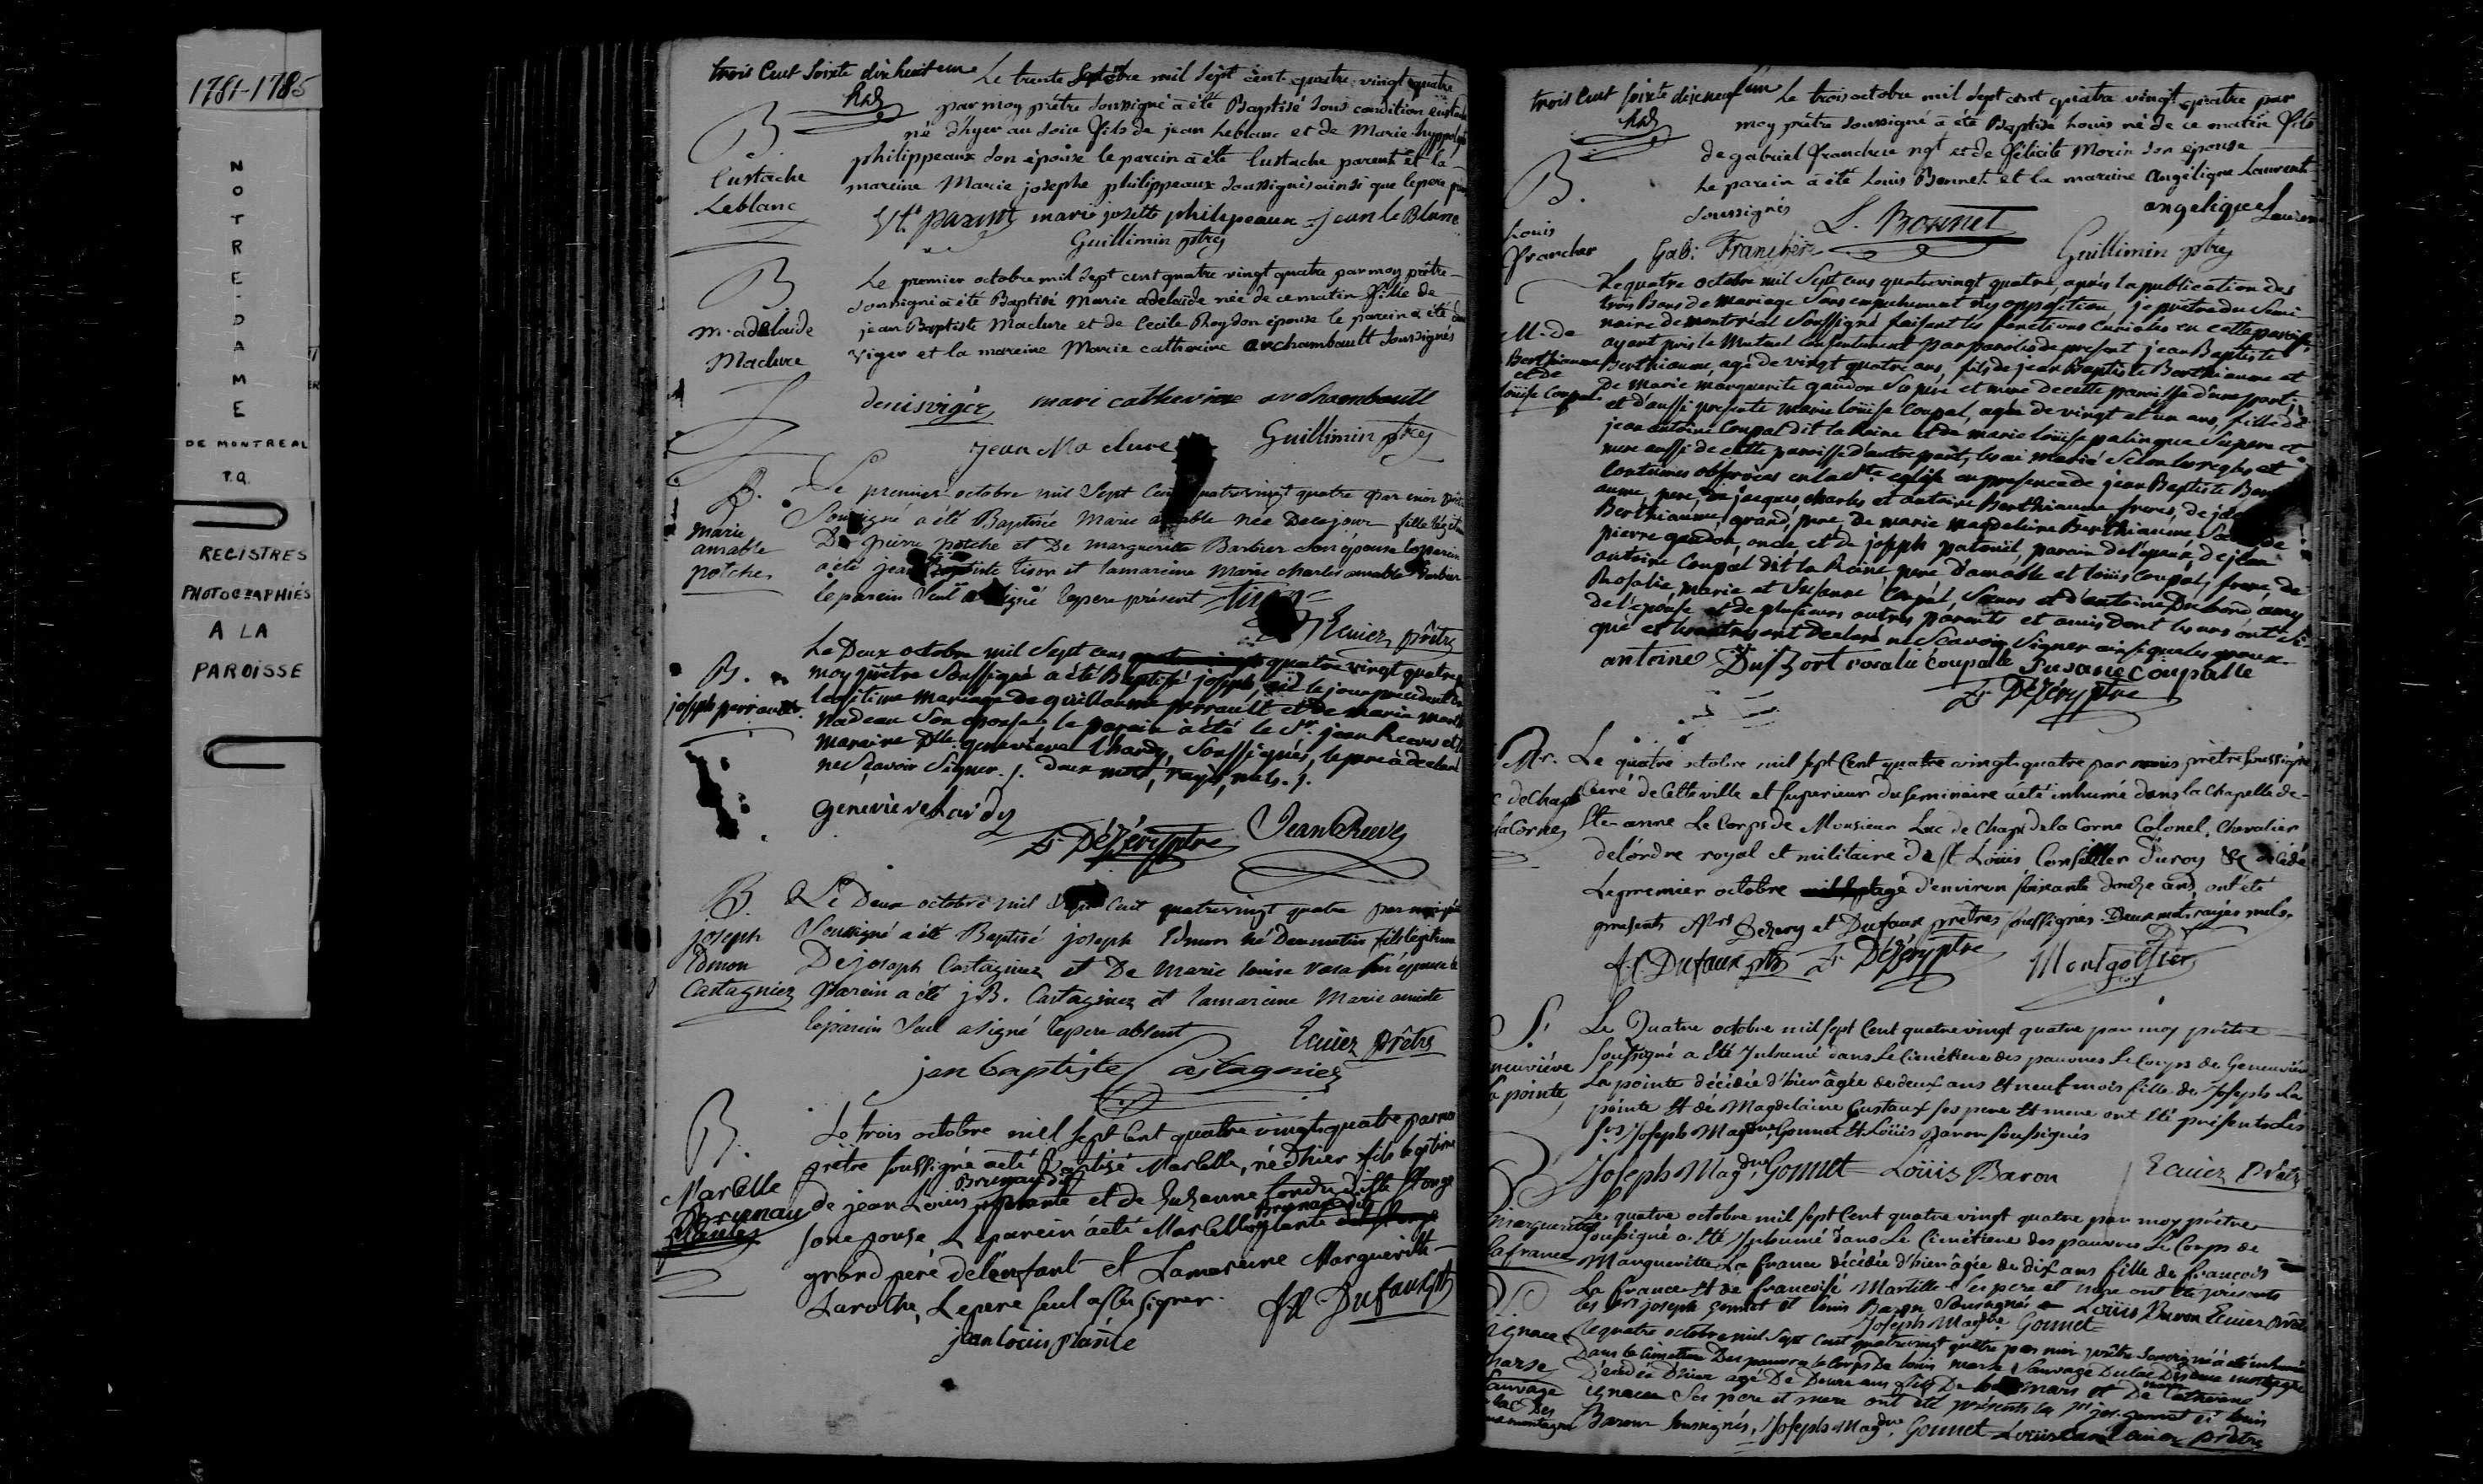 1781-1785
NOTRE-DAME
DE MONTREAL
P.Q.
REGISTRES
PHOTOGRAPHIÉS
A LA
PAROISSE
trois Cent soixte dix huit eme Le trente Septbre mil Sept cent quatre vingt quatre
par moy prêtre soussigné a été Baptisé sous condition
B
né d'hyer au soir fils de jean Leblanc et de Marie
philippeaux son épouse le parein a été Eustache parent et la
Eustache
mareine Marie josephe philippeaux soussignés ainsi que le pere
Leblanc
parent marie josette philipeaux jean le Blanc
Guillimin ptre
B
Le premier octobre mil Sept cent quatre vingt quatre par moy prêtre
soussigné a été Baptisé Marie adelaide née de ce matin fille de
m. adelaide
jean Baptiste Maclure et de Cecile épouse le parein a été
Maclure
viger et la mareine Marie catherine archambault soussignés
denis viger marie catherine archambault
jean Maclure Guillimin ptre
B.
Le premier octobre mil Sept Cent quatrevingt quatre par moi
Soussigné a été Baptisée Marie amable née De ce jour fille
marie
amable
potche
De pierre potche et De marguerite Barbier son épouse le parein
a été jean tison et la mareine Marie charles amable Barbier
le parein Seul a signé le pere présent
Ecuier prêtre
B.
joseph perrault
Le Deux octobre mil Sept cens quatre vingt quatre
moy prêtre Soussigné a été Baptisé joseph, né le jour précédent
legitime mariage de guillaume perrault et de marie
nadeau Son epouse, le parain à été le Sr. jean Reeves et
maraine Dlle genevieve Lhardy, Soussignés, le pere à declaré
ne Sçavoir Signer. /. deux mots, rayés, nuls. /.
genevieve hardy
Dézéry ptre Jean Reeves
B.
Le Deux octobre mil Sept Cent quatrevingt quatre par moi
joseph
Edmon
Castagniez
Soussigné a été Baptisé joseph Edmon né De ce matin fils légitime
De joseph Castagniez et De Marie louise son épouse le
parein a été j.B. Castagniez et la mareine Marie
le parein Seul a signé le pere absent
Ecuier prêtre
jean baptiste Castagniez
B.
Le trois octobre mil sept Cent quatre vingt quatre par moi
prêtre soussigné a été Baptisé Marcelle, né d'hier fils legitime
Marcelle
Brunau
Plante
Brunau dit
de jean Louis plante et de Suzanne
son epouse Le parein a été Marcelle plante
grand pere de l'enfant et La mareine Marguerite
Laroche, Le pere seul a sçu signer.
Dufaux ptre
jean Louis plante
trois Cent soixte dix neuf eme Le trois octobre mil Sept cent quatre vingt quatre par
moy prêtre soussigné a été Baptisé Louis né de ce matin fils
B.
de gabriel franchere ngt et de félicité Morin son épouse
Le parein a été Louis Bonnet et la mareine angélique Laurent
soussignés
angelique Laurent
Louis
francher
L. Bonnet
Gab: Franchere Guillimin ptre
Le quatre octobre mil Sept cens quatrevingt quatre, après la publication des
trois Bans de mariage Sans empechement n'y opposition, je prêtre du Semi-
naire de montréal Soussigné faisant les fonctions Curiales en cette paroisse
M. de
Berthiaume
et de
loüise Coupal
ayant pris le Mutuel consentement par paroles de present jean Baptiste
Berthiaume, agé de vingt quatre ans, fils de jean Baptiste Berthiaume et
de marie marguerite gandon Ses père et mere de cette paroisse d'une part;
et d'aussi presente marie loüise Coupal, agée de vingt et un ans, fille de
jean antoine Coupal dit la Reine et de marie loüise palingue Ses pere et
mere aussi de cette paroisse d'autre part, les ai mariés Selon les regles et
Coutumes observées en la Ste. eglise en presence de jean Baptiste
pere, de jacques charles et antoine Berthiaume freres,
Berthiaume, grand pere, de marie magdeleine Berthiaume
pierre gandon, oncle et de joseph patenil, parain de l'epoux, de jean
antoine Coupal dit la Reine, pere d'amable et loüis Coupal, freres de
Rosalie, marie et Susanne Coupal Sœurs et d'antoine
de l'épouse et de plusieurs autres parents et amis dont les uns ont Si-
gné et les autres ont declaré ne Sçavoir Signer ainsi que les epoux.
antoine rosalie Coupalle Susane Coupalle
Dézéry ptre
Mr.
Le quatre octobre mil sept Cent quatre vingt quatre par nous prêtre soussigné
Curé de Cette ville et Superieur du Seminaire a été inhumé dans la Chapelle de
Ste anne Le Corps de Monsieur Luc de Chapt de la Corne Colonel, Chevalier
la Corne
de l'ordre royal et militaire de St Loüis Conseiller du roy &c décédé
Le premier octobre agé d'environ soixante douze ans, ont été
presents Mrs Dézery et Dufaux prêtres soussignés. Deux mots rayés nuls.
Dufaux ptre Dézéry ptre Montgolfier
S.
Le Quatre octobre mil sept Cent quatre vingt quatre par moy prêtre
soussigné a été Inhumé dans Le Cimétiere des pauvres Le Corps de
la pointe
La pointe décédée d'hier âgée de deux ans et neuf mois fille de Joseph La
pointe et de Magdelaine ses pere et mere ont été présents Les
Srs Joseph Magdne Gonnet et Loüis Baron soussignés
Joseph Magdne Gonnet Loüis Baron Ecuier Prêtre
Le quatre octobre mil sept Cent quatre vingt quatre par moy prêtre
Marguerite
la france
soussigné a été Inhumé dans Le Cimétiere des pauvres Le Corps de
Marguerite La france décédée d'hier âgée de dix ans fille de françois
La france et de françoise Ses pere et mere ont été présents
les Srs joseph gonnet et louis Baron Soussignés Loüis Baron Ecuier Prêtre
Joseph Magdne Gonnet
Le quatre octobre mil Sept Cent quatrevingt quatre par moi prêtre Soussigné a été inhumé
Dans le Cimetiere Des pauvres le Corps De louis
Sauvage
lac Des
Ses pere et mere ont été présents les Srs jos. gonnet et louis
Baron Soussignés, Joseph Magdne Gonnet Ecuier prêtre